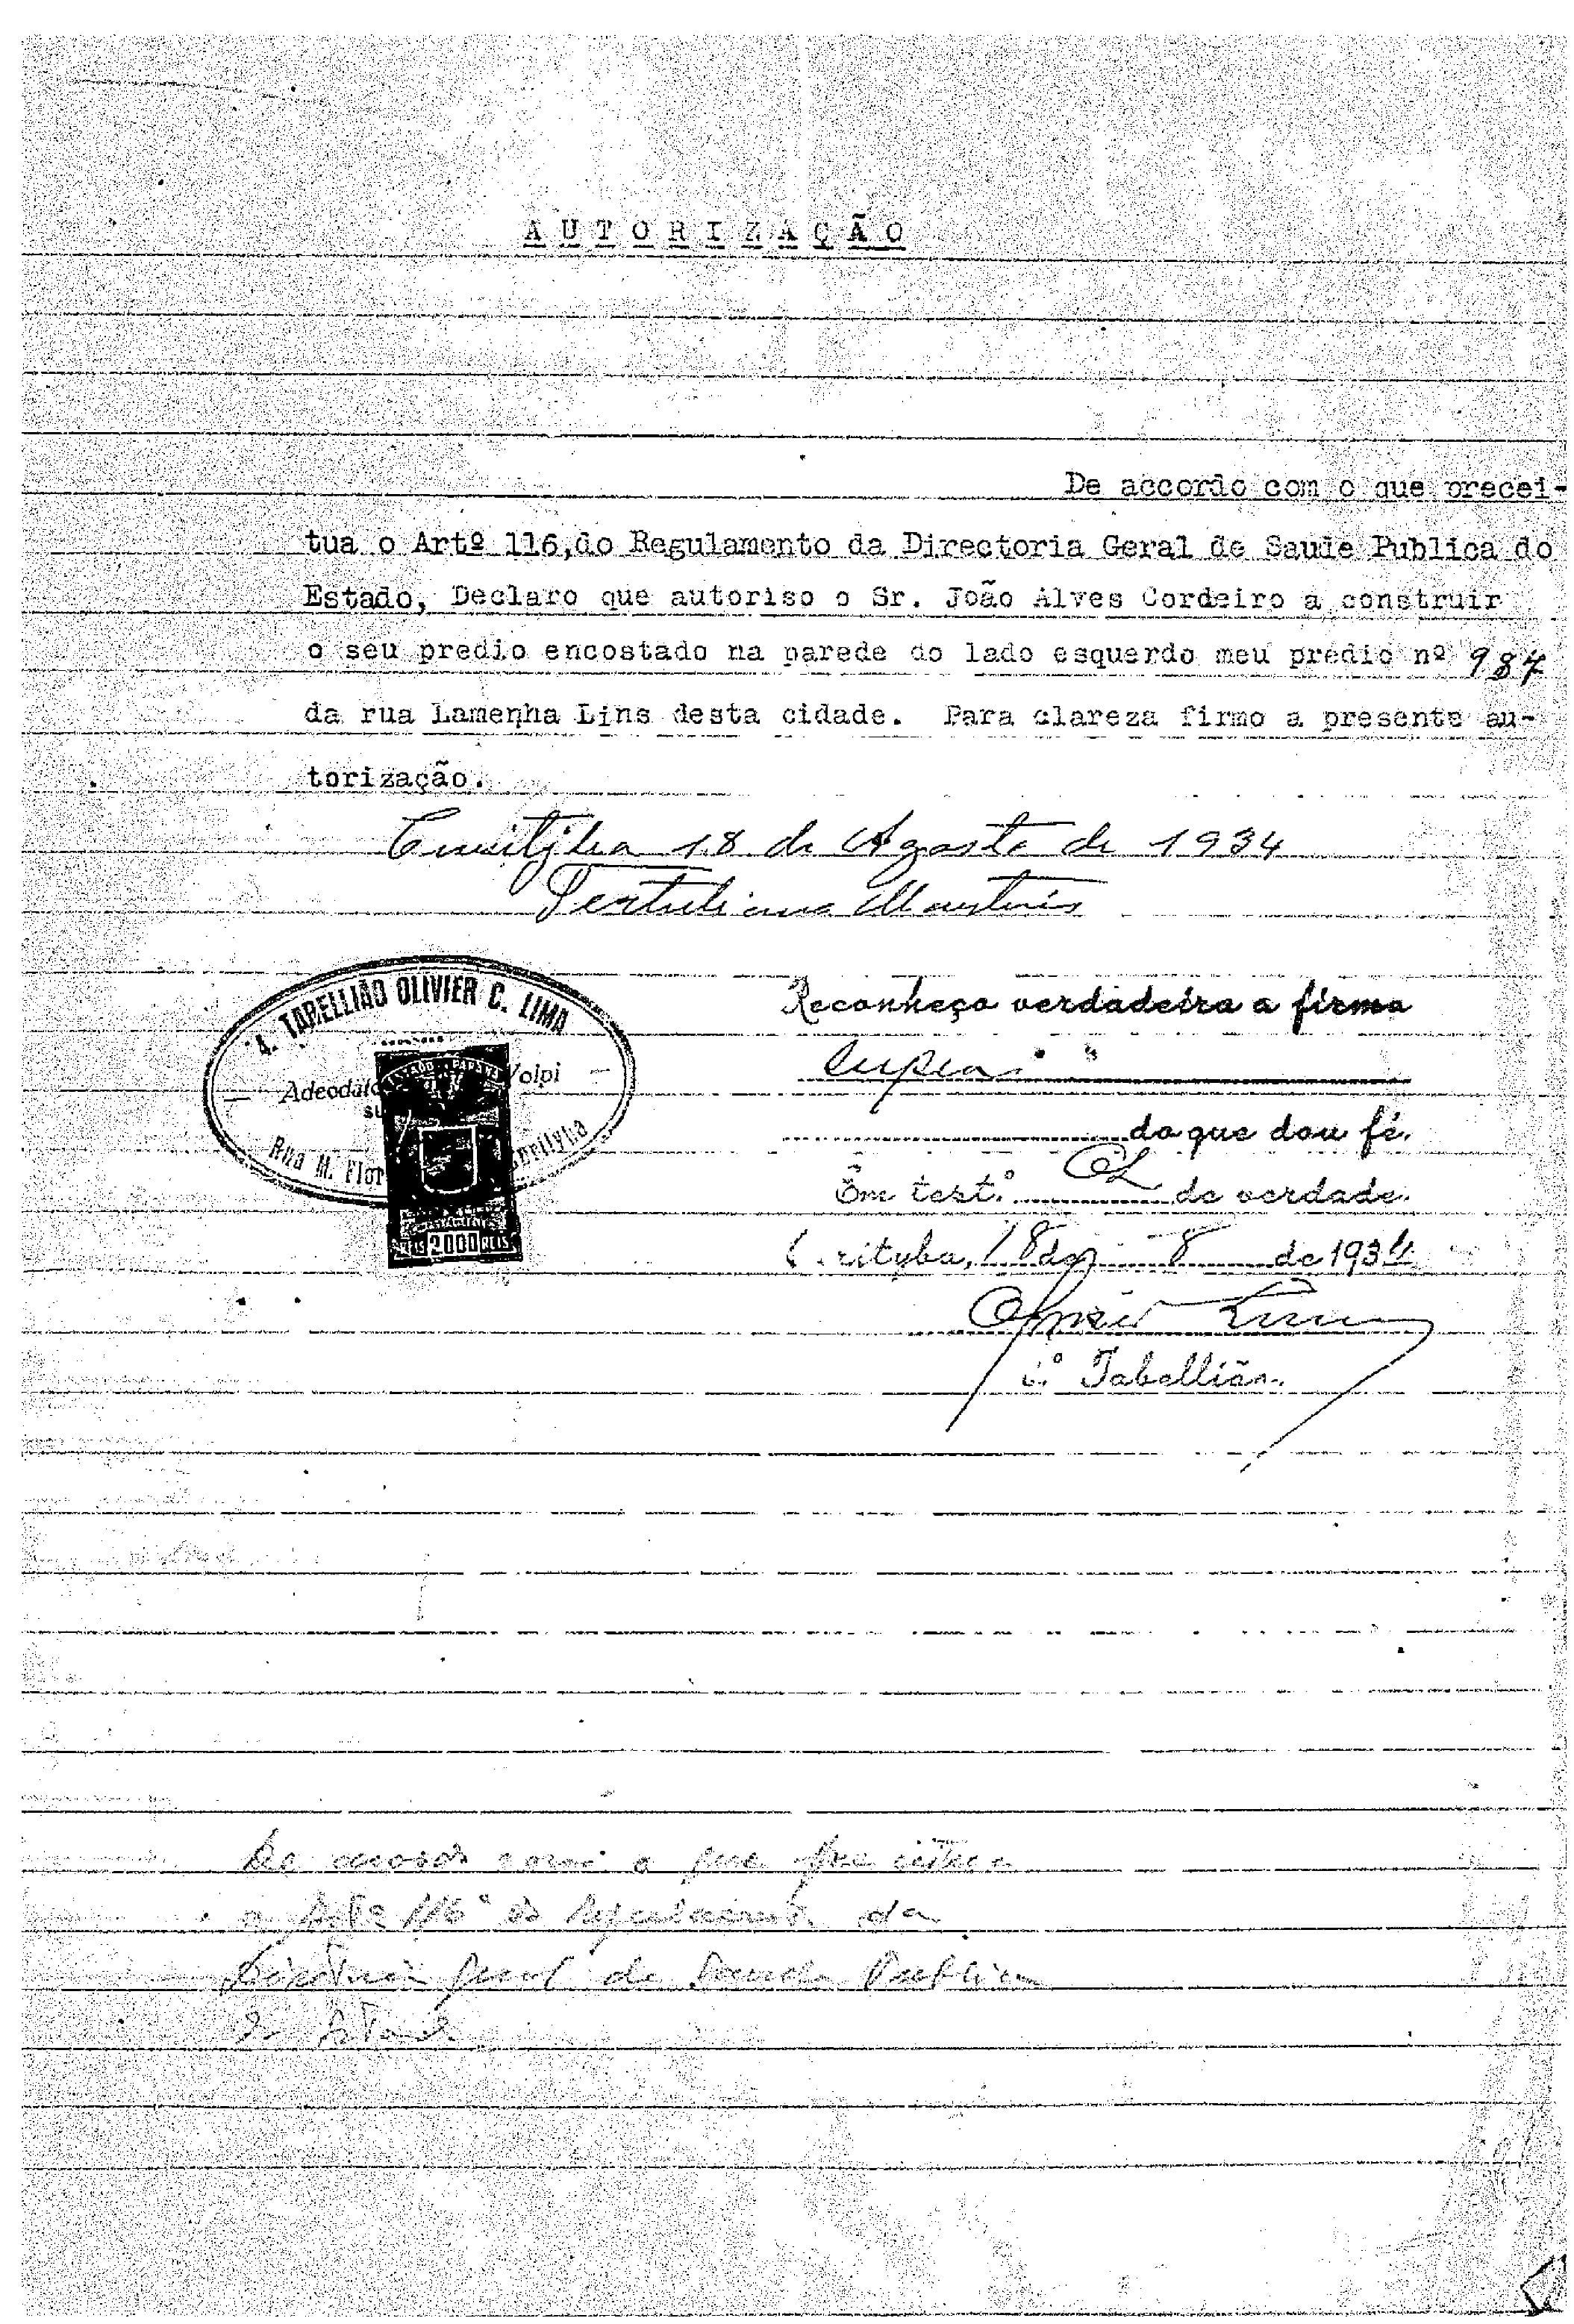 AUTORIZAÇÃO
De accordo com o que precei-
tua o Artº 116,do Regulamento da Directoria Geral de Saude Publica do
Estado, Declaro que autoriso o Sr. João Alves Cordeiro a construir
o seu predio encostado na parede do lado esquerdo meu predio nº 987
da rua Lamenha Lins desta cidade. Para clareza firmo a presente au-
torização.
Curitjba 18 de Agosto de 1934
Tertuliano Martins
4. TABELLIÃO OLIVIER C. LIMA
Adeodato Volpi
Rua M. Flor Curityba
ESTADO PARANÁ
REIS 2000 REIS
Reconheço verdadeira a firma
supra
do que dou fé.
Em test.º OL de verdade.
Curityba, 18 de 8 de 1934
Olivier Lima
4.º Tabellião.
De accordo com o que preceitua
o Artº 116º do Regulamento da
Directoria Geral de Saude Publica
do Estado